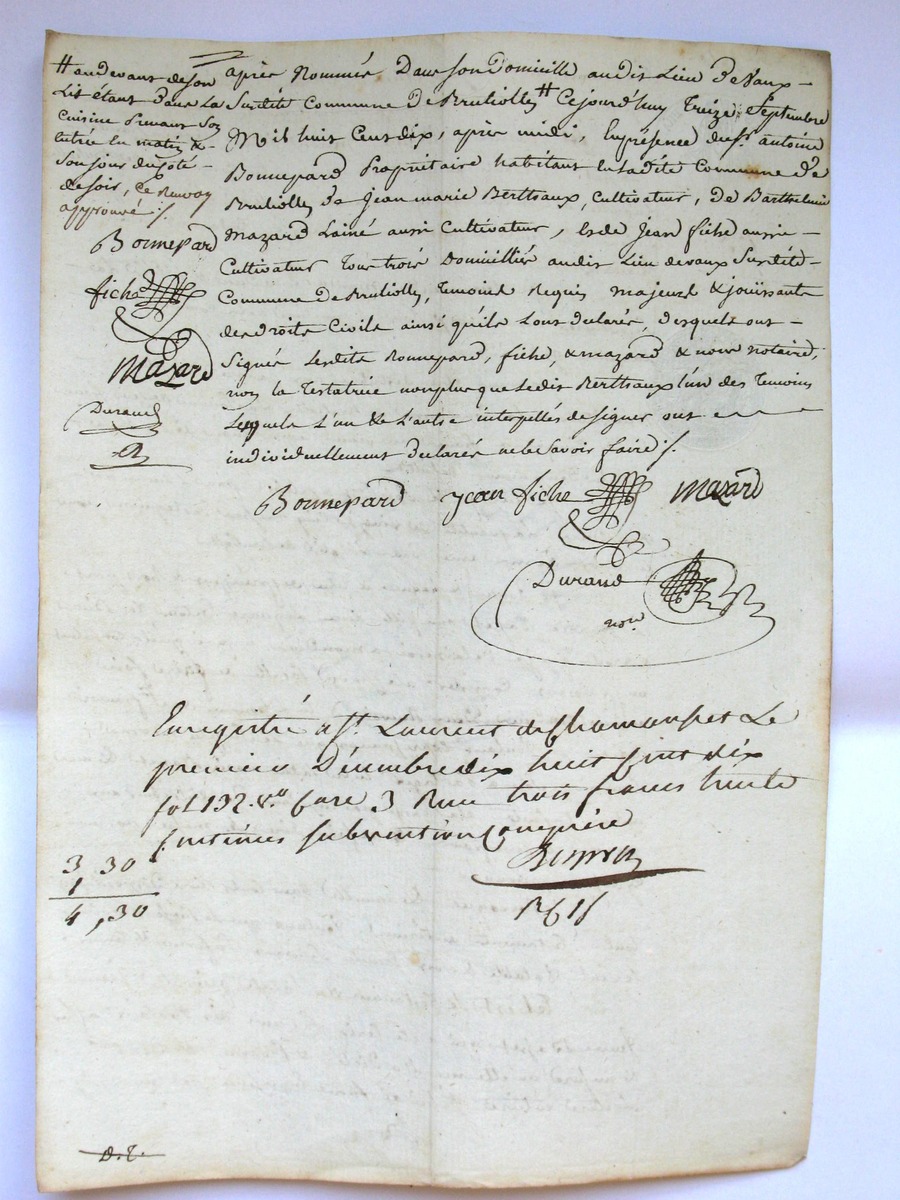 # au devant de son
Lit étant dans La
Cuisine Prenant Son
Entrée Du matin &
Son jour du Côté
de soir, Ce Renvoy
approuvé ./.
Bonnepard
fiche
Mazard
Durand
après Nommés Dans Son Domicille audit Lieu de Vaux
Susdité Commune De Brulliolles # Cejourd'huy Treize Septembre
Mil huit Cent dix, après midi, En présence du Sr. antoine
Bonnepard Propriétaire habitant Ensadite Commune De
Brulliolles De Jean marie Berthaux, Cultivateur, De Barthelmi
Mazard Lainé aussi Cultivateur, & de Jean fiche aussi
Cultivateur Tous trois Domicilliés audit Lieu de vaux Susdité
Commune de Brulliolles, Temoins Requis majeurs & joüissants
des droits Civils ainsi qu'ils L'ont declarés, desquels ont
Signés Lesdits Bonnepard, fiche, & mazard & nous notaire,
non la Testatrice non plus que Ledit Berthaux l'un des Temoins
Lesquels L'un & L'autre interpellés de Signer ont
individuellement declarés ne le Savoir faire ./.
Bonnepard Jean fiche Mazard
Durand
nore
Enregistré a St. Laurent de Chamousset Le
premier Décembre dix huit Cent dix
fol 132 Vo Case 3 Reçu trois francs trente
Centimes Subvention Comprise
3 30
1
4,30
D. T.